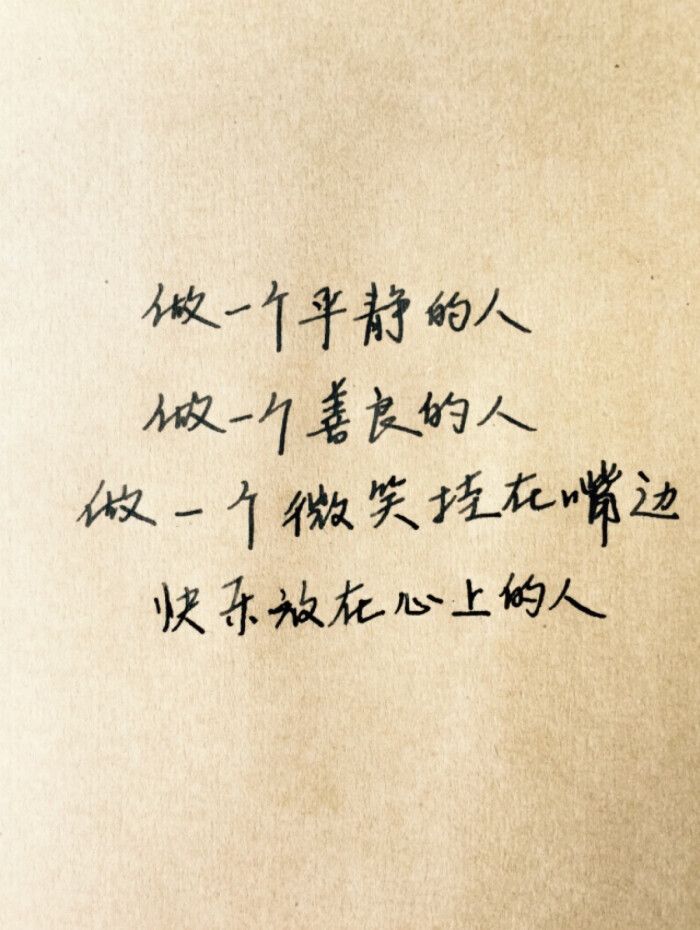 做一个平静的人
做一个善良的人
做一个微笑挂在嘴边
快乐放在心上的人